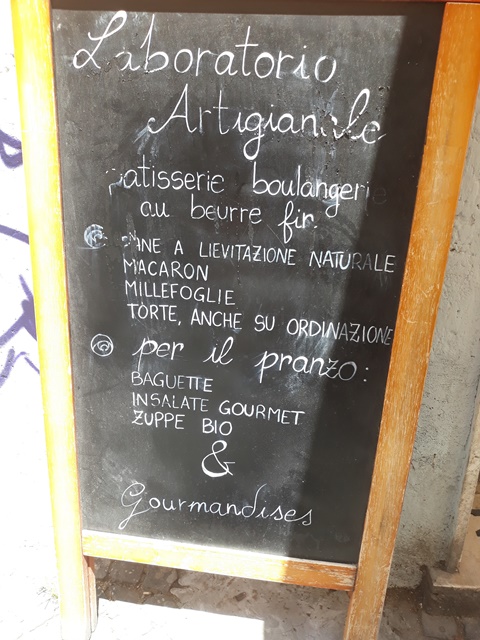 Laboratorio
Artigianale
patisserie boulangerie
au beurre fin
PANE A LIEVITAZIONE NATURALE
MACARON
MILLEFOGLIE
TORTE, ANCHE SU ORDINAZIONE
per il pranzo:
BAGUETTE
INSALATE GOURMET
ZUPPE BIO
&
Gourmandises